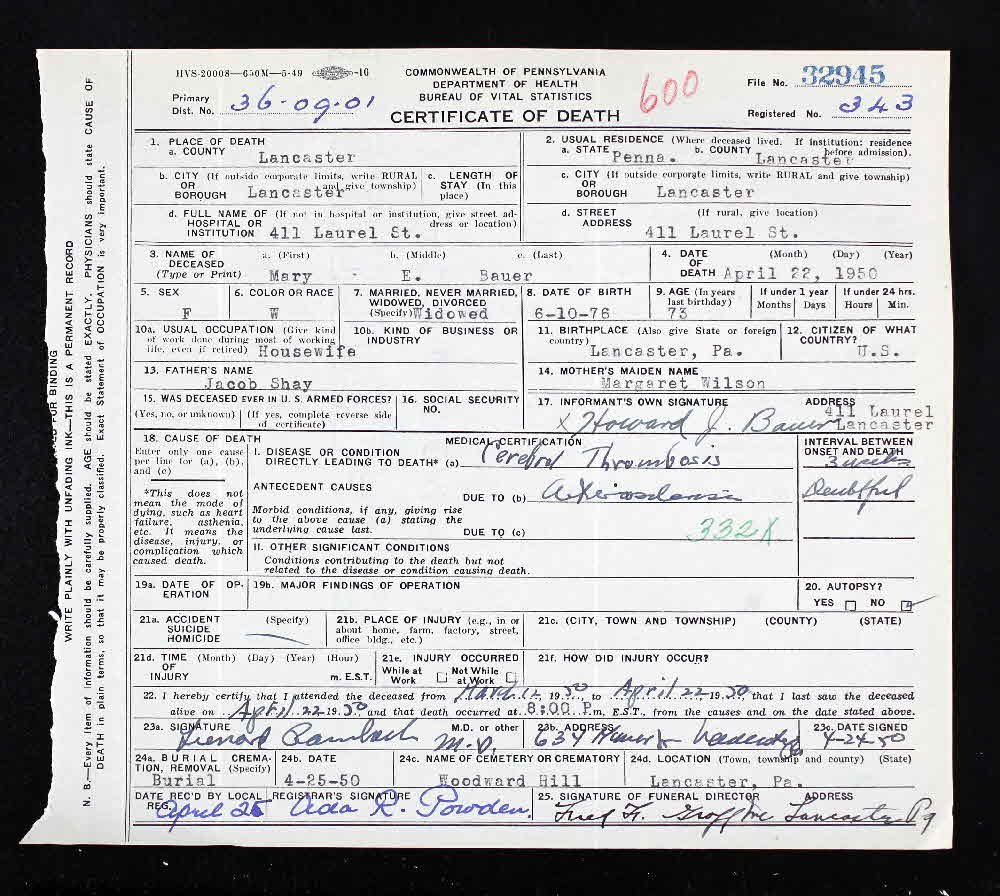 HVS-20008—650M—5-49 -16
COMMONWEALTH OF PENNSYLVANIA
DEPARTMENT OF HEALTH
BUREAU OF VITAL STATISTICS
CERTIFICATE OF DEATH
600
File No. 32945
Primary Dist. No. 36-09-01
Registered No. 343
1. PLACE OF DEATH
a. COUNTY Lancaster
2. USUAL RESIDENCE (Where deceased lived. If institution: residence before admission).
a. STATE Penna. b. COUNTY Lancaster
b. CITY (If outside corporate limits, write RURAL and give township) OR BOROUGH Lancaster
c. LENGTH OF STAY (In this place)
c. CITY (If outside corporate limits, write RURAL and give township) OR BOROUGH Lancaster
d. FULL NAME OF (If not in hospital or institution, give street address or location) HOSPITAL OR INSTITUTION 411 Laurel St.
d. STREET ADDRESS (If rural, give location) 411 Laurel St.
3. NAME OF DECEASED (Type or Print) a. (First) b. (Middle) c. (Last)
Mary E. Bauer
4. DATE OF DEATH (Month) (Day) (Year) April 22, 1950
5. SEX F
6. COLOR OR RACE W
7. MARRIED, NEVER MARRIED, WIDOWED, DIVORCED (Specify) Widowed
8. DATE OF BIRTH 6-10-76
9. AGE (In years last birthday) 73
If under 1 year Months Days
If under 24 hrs. Hours Min.
10a. USUAL OCCUPATION (Give kind of work done during most of working life, even if retired) Housewife
10b. KIND OF BUSINESS OR INDUSTRY
11. BIRTHPLACE (Also give State or foreign country) Lancaster, Pa.
12. CITIZEN OF WHAT COUNTRY? U.S.
13. FATHER'S NAME
Jacob Shay
14. MOTHER'S MAIDEN NAME
Margaret Wilson
15. WAS DECEASED EVER IN U. S. ARMED FORCES? (Yes, no, or unknown) (If yes, complete reverse side of certificate)
16. SOCIAL SECURITY NO.
17. INFORMANT'S OWN SIGNATURE ADDRESS
x Howard J. Bauer 411 Laurel Lancaster
18. CAUSE OF DEATH
Enter only one cause per line for (a), (b), and (c)
MEDICAL CERTIFICATION
INTERVAL BETWEEN ONSET AND DEATH
I. DISEASE OR CONDITION DIRECTLY LEADING TO DEATH* (a) Cerebral Thrombosis 3 weeks
*This does not mean the mode of dying, such as heart failure, asthenia, etc. It means the disease, injury, or complication which caused death.
ANTECEDENT CAUSES
DUE TO (b) Doubtful
Morbid conditions, if any, giving rise to the above cause (a) stating the underlying cause last.
DUE TO (c)
332X
II. OTHER SIGNIFICANT CONDITIONS
Conditions contributing to the death but not related to the disease or condition causing death.
19a. DATE OF OPERATION
19b. MAJOR FINDINGS OF OPERATION
20. AUTOPSY?
YES NO
21a. ACCIDENT SUICIDE HOMICIDE (Specify)
21b. PLACE OF INJURY (e.g., in or about home, farm, factory, street, office bldg., etc.)
21c. (CITY, TOWN AND TOWNSHIP) (COUNTY) (STATE)
21d. TIME OF INJURY (Month) (Day) (Year) (Hour) m. E.S.T.
21e. INJURY OCCURRED
While at Work Not While at Work
21f. HOW DID INJURY OCCUR?
22. I hereby certify that I attended the deceased from March 12, 1950, to April 22 1950 that I last saw the deceased
alive on April 22 1950 and that death occurred at 8:00 P.m. E.S.T., from the causes and on the date stated above.
23a. SIGNATURE M.D. or other
M.D.
23b. ADDRESS
634
23c. DATE SIGNED
4-24-50
24a. BURIAL CREMATION, REMOVAL (Specify) Burial
24b. DATE 4-25-50
24c. NAME OF CEMETERY OR CREMATORY
Woodward Hill
24d. LOCATION (Town, township and county) (State)
Lancaster, Pa.
DATE REC'D BY LOCAL REG. April 25
REGISTRAR'S SIGNATURE
Ada R. Powden.
25. SIGNATURE OF FUNERAL DIRECTOR ADDRESS
Fred F. Groff Inc Lancaster Pa
FOR BINDING
WRITE PLAINLY WITH UNFADING INK—THIS IS A PERMANENT RECORD
N. B.—Every item of information should be carefully supplied. AGE should be stated EXACTLY. PHYSICIANS should state CAUSE OF
DEATH in plain terms, so that it may be properly classified. Exact Statement of OCCUPATION is very important.